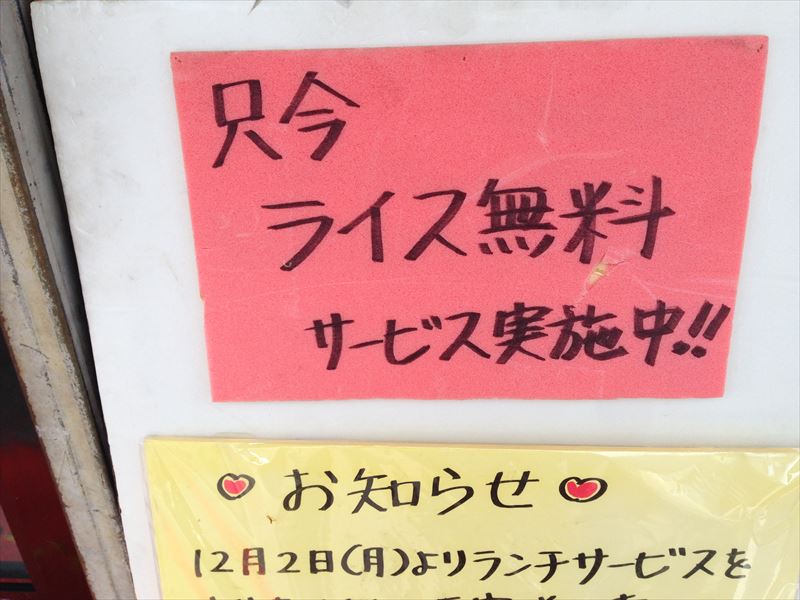 只今
ライス無料
サービス実施中!!
お知らせ
12月2日(月)よりランチサービスを